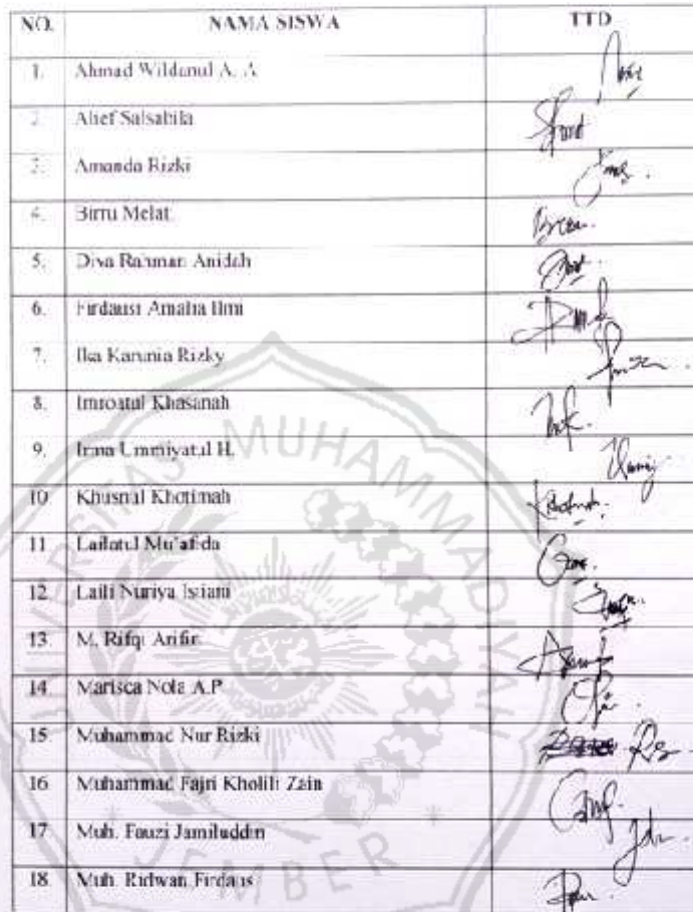 NO. NAMA SISWA TTD
1. Ahmad Wildanul A. A
2. Alief Salsabila
3. Amanda Rizki
4. Birru Melati
5. Diva Rahman Anidah
6. Firdausi Amalia Ilmi
7. Ika Karunia Rizky
8. Imroatul Khasanah
9. Irma Ummiyatul H.
10. Khusnul Khotimah
11. Lailatul Mu'afida
12. Laili Nuriya Isiani
13. M. Rifqi Arifin
14. Marisca Nola A.P
15. Muhammad Nur Rizki
16. Muhammad Fajri Kholili Zain
17. Muh. Fauzi Jamiluddin
18. Muh. Ridwan Firdaus
UNIVERSITAS MUHAMMADIYAH
JEMBER